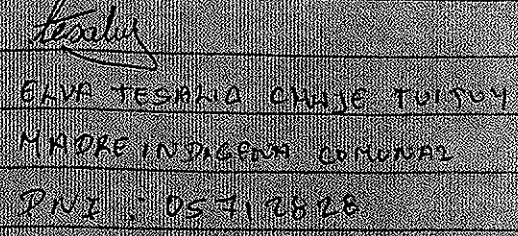 tesaluy
ELVA TESALIA CHUJE TUITUY
MADRE INDIGENA COMUNAL
DNI : 05712828